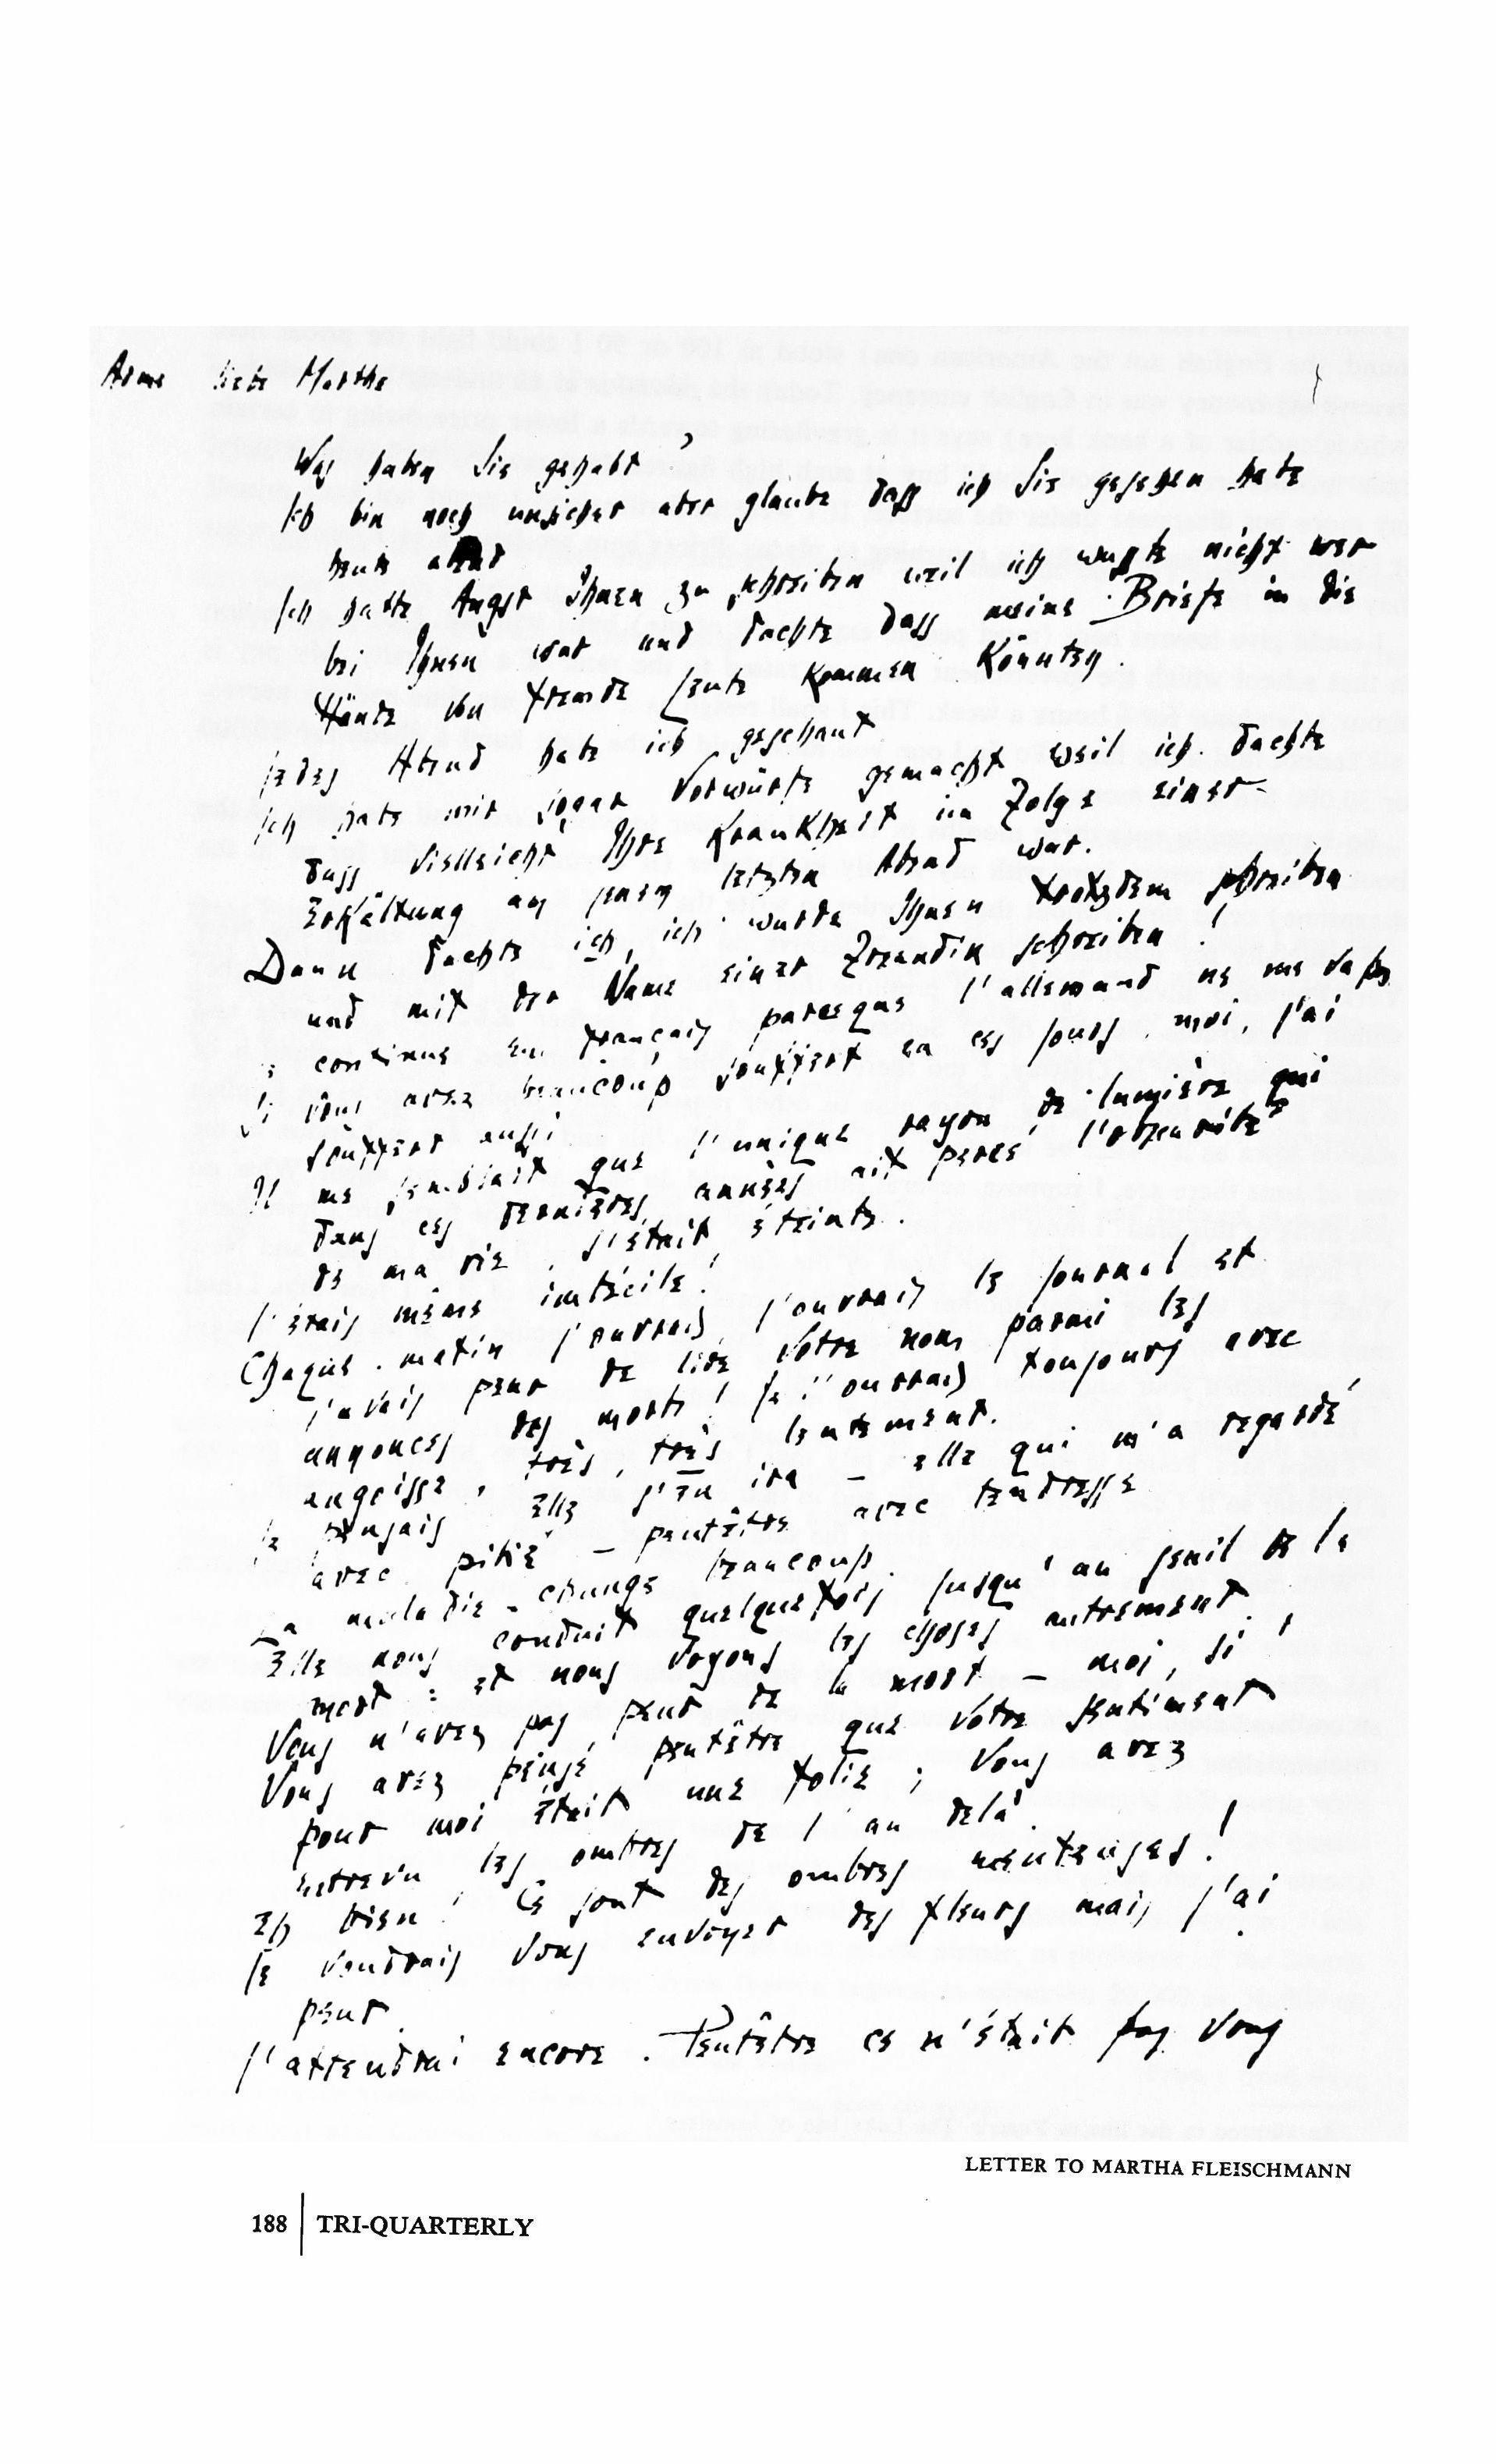 Arme liebe Marthe
Was haben Sie gehabt ?
Ich bin noch unsicher aber glaube dass ich Sie gesehen habe
heute abend
Ich hatte Angst Ihnen zu schreiben weil ich wusste nicht wer
bei Ihnen war und dachte dass meine Briefe in die
Hände von fremde Leute kommen könnten.
Jedes Abend habe ich geschaut
Ich habe mir sogar Vorwürfe gemacht weil ich dachte
dass vielleicht Ihre Krankheit in Folge einer
Erkältung an jenem letzten Abend war.
Dann dachte ich, ich wurde Ihnen trotzdem schreiben
und mit der Name einer Freundin schreiben !
Je continue en français parceque l'allemand ne me va pas
Si vous avez beaucoup souffert en ces jours, moi, j'ai
souffert aussi
Il me semblait que l'unique rayon de lumière qui
dans ces dernières années ait percé l'obscurité
de ma vie, s'était éteinte.
J'étais même imbécile !
Chaque matin j'ouvrais j'ouvrais le journal et
j'avais peur de lire votre nom parmi les
annonces des morts ! Je l'ouvrais toujours avec
angoisse, très, très lentement.
Je pensais Elle s'en ira – elle qui m'a regardé
avec pitié – peutêtre avec tendresse
La maladie change beaucoup.
Elle nous conduit quelquefois jusqu'au seuil de la
mort : et nous voyons les choses autrement.
Vous n'avez pas peur de la mort – moi, si !
Vous avez pensé peutêtre que votre sentiment
pour moi était une folie ; vous avez
entrevu les ombres de l'au delà.
Eh bien ! Ce sont des ombres mensonges !
Je voudrais vous envoyer des fleurs mais j'ai
peur.
J'attendrai encore. Peutêtre ce n'était pas vous
LETTER TO MARTHA FLEISCHMANN
188 | TRI-QUARTERLY